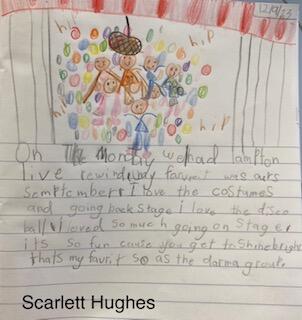 12/9/23
hip
hip
hip
hip
On The Monday we had lampton
live rewind my farvert was ars
Semptcember i love the costumes
and going back stage i love the disco
ball i loved so much going on stager
its so fun cause you get to shine bright
thats my favrit so as the darma groute
Scarlett Hughes